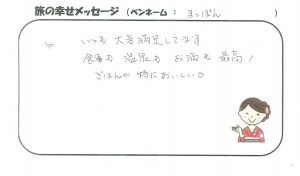 旅の幸せメッセージ（ペンネーム： まっぽん ）
いつも 大変満足してます
食事も 温泉も お酒も 最高！
ごはんが 特においしい♡